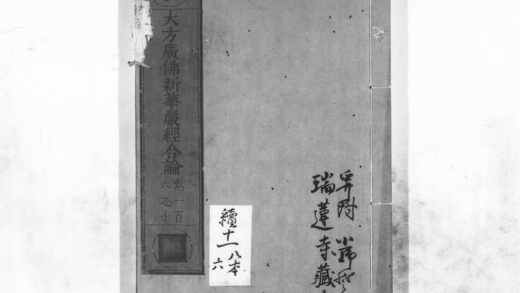 大方廣佛新華嚴經合論
卷一百
六之七
續十一
八本
六
瑞蓮寺藏